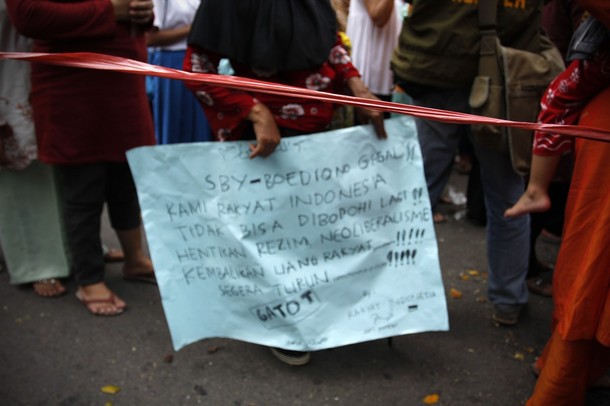 SBY-BOEDIONO GAGAL!!
KAMI RAKYAT INDONESIA
TIDAK BISA DIBOPOHI LAGI!!
HENTIKAN REZIM NEOLIBERALISME
KEMBALIKAN UANG RAKYAT ---- !!!!!
SEGERA TURUN ---- !!!!!
GATOT
RAKYAT INDONESIA